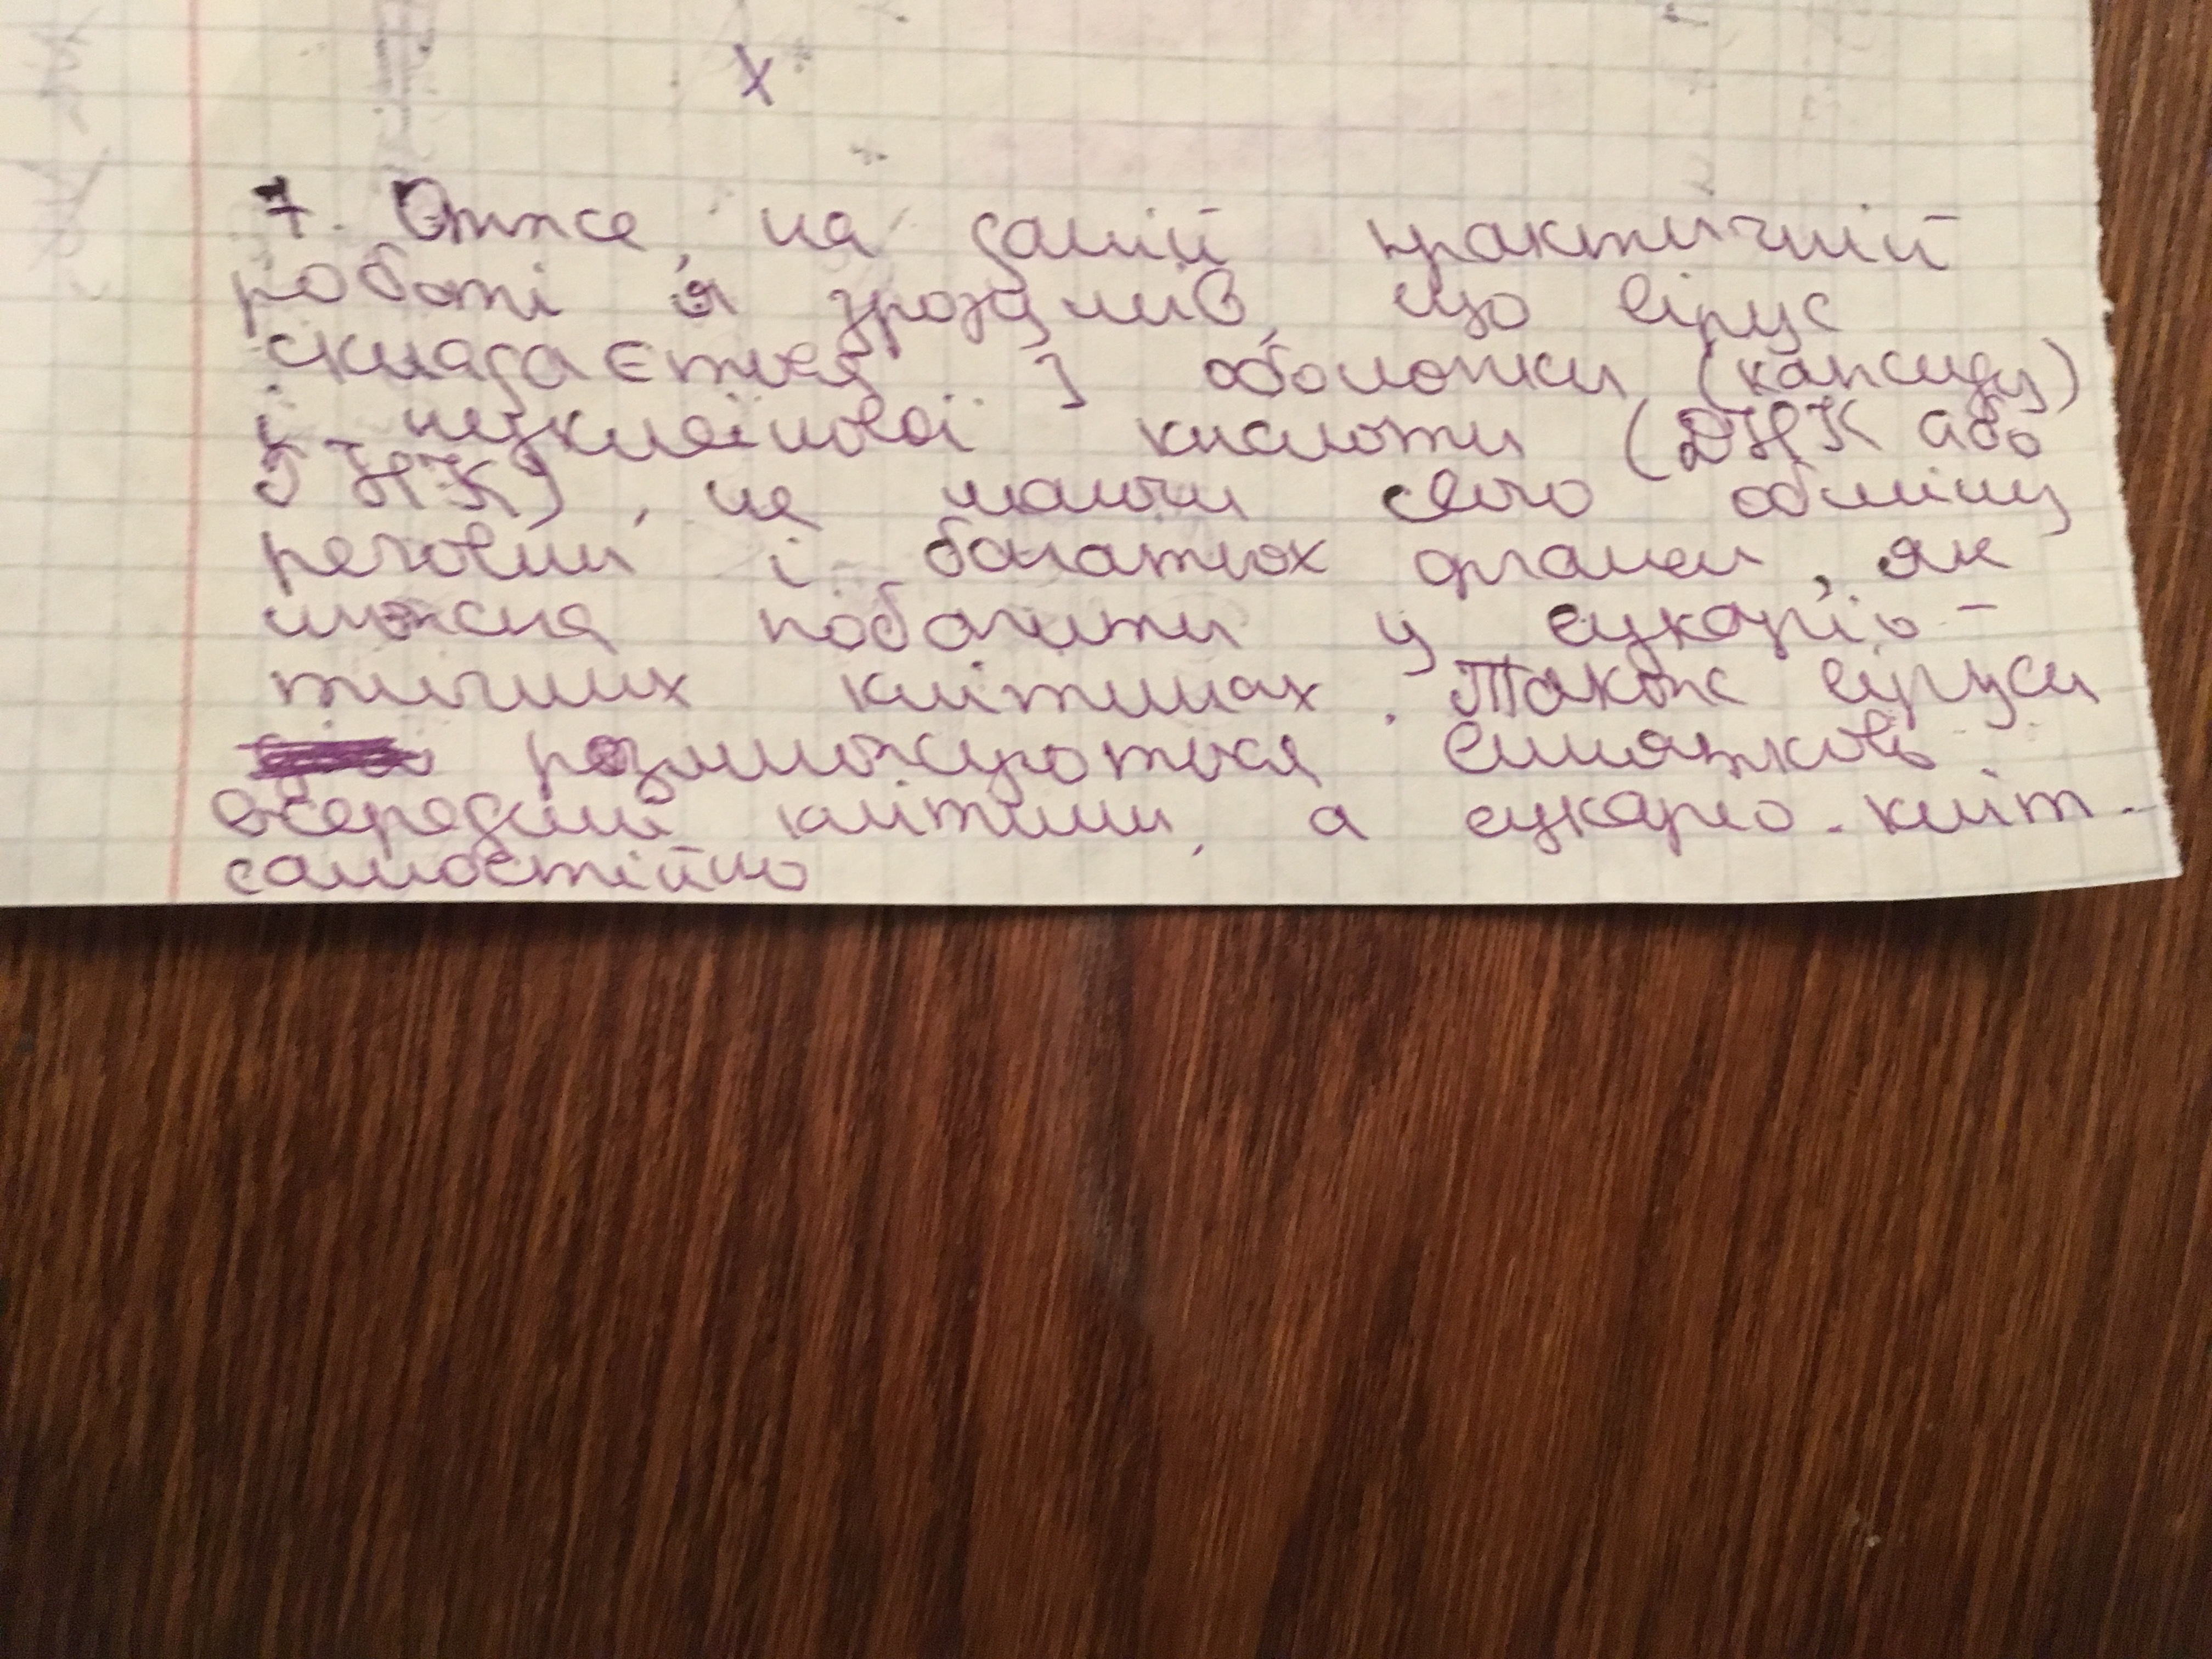 х
7. Отже, на даній практичній
роботі я зрозумів, що вірус
складається з оболонки (капсиду)
і нуклеїнової кислоти (ДНК або
РНК), не маючи свого обміну
речовин і багатьох органел, як
можна побачити у еукаріо-
тичних клітинах. Також віруси
розмножуються виключково
всередині клітини, а еукаріо. кліт.
самостійно